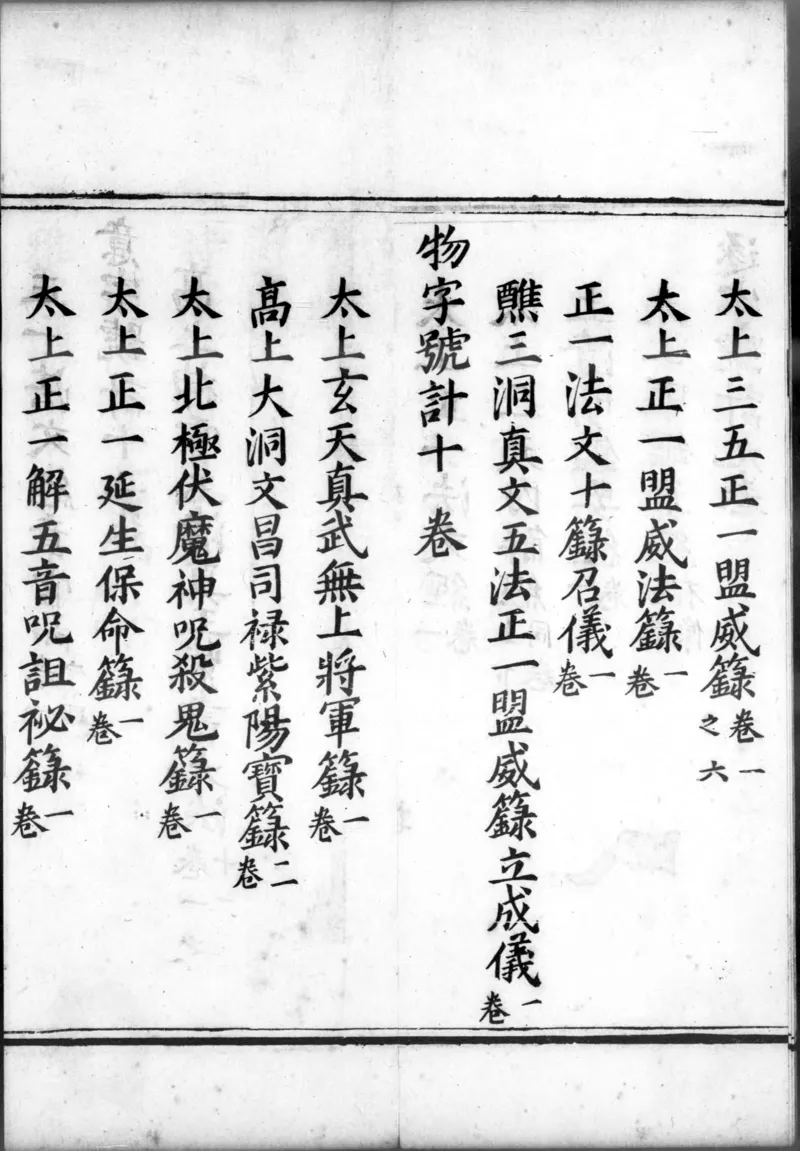 太上三五正一盟威籙卷一之六
太上正一盟威法籙一卷
正一法文十籙召儀一卷
醮三洞真文五法正一盟威籙立成儀一卷
物字號計十卷
太上玄天真武無上將軍籙一卷
髙上大洞文昌司禄紫陽寶籙二卷
太上北極伏魔神呪殺鬼籙一卷
太上正一延生保命籙一卷
太上正一解五音呪詛祕籙一卷